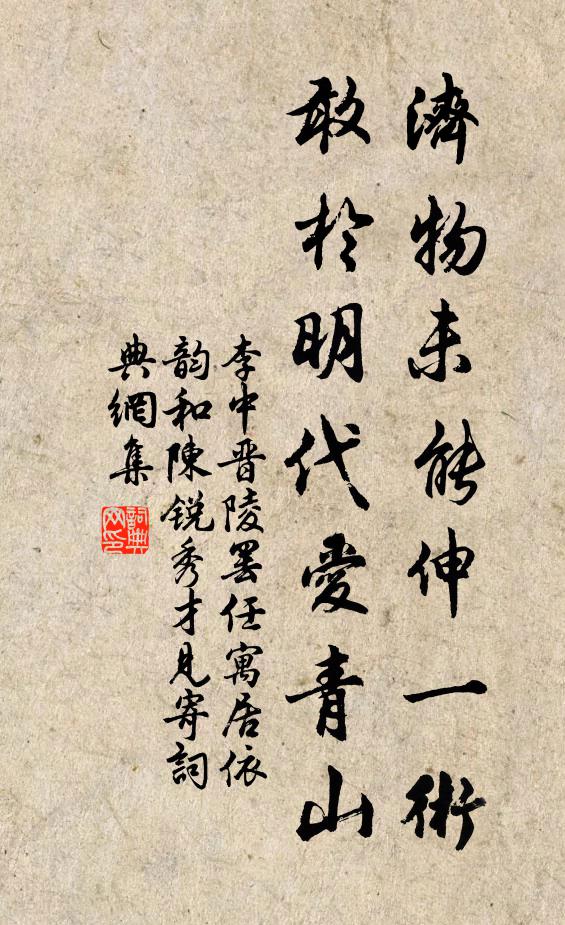 濟物未能伸一術
敢於明代愛青山
李中晋陵罢任寓居依
韵和陳锐秀才見寄詞
典網集
詞典
网印